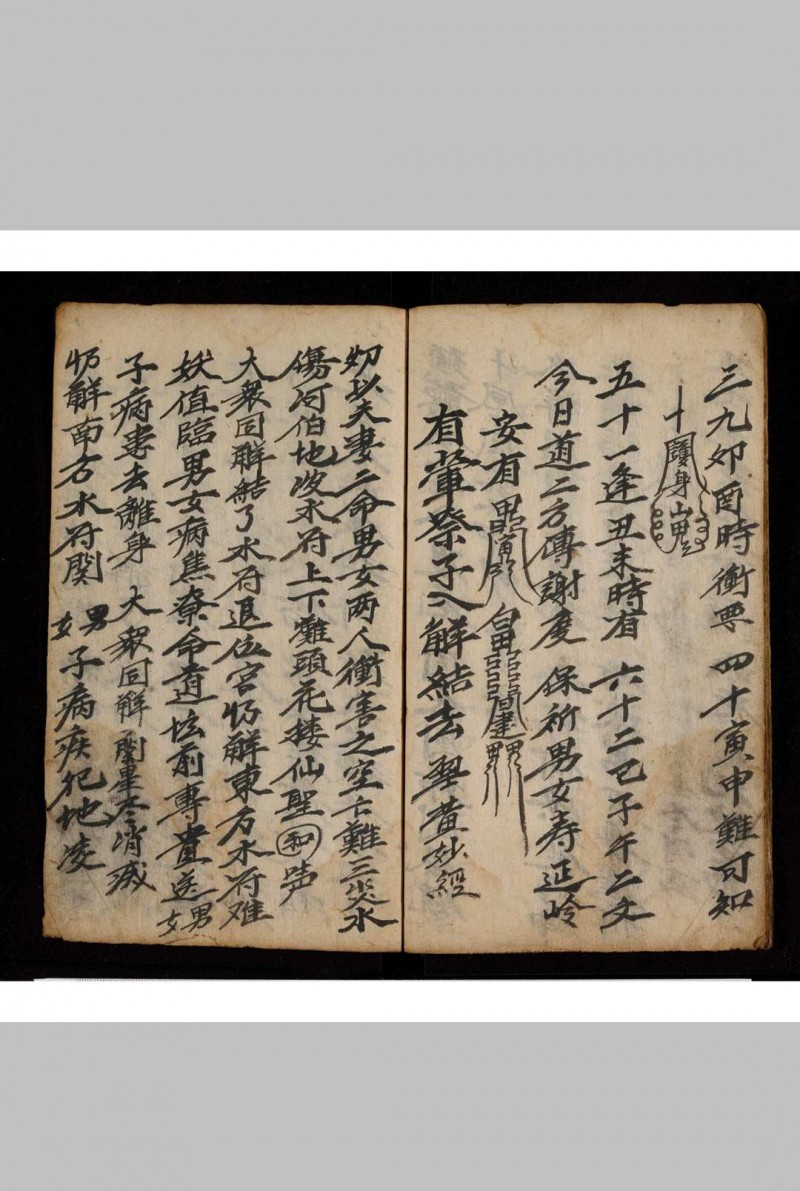 三九卯酉時衝要 四十寅申難可知
護身
五十一逢丑未時有 六十二巳子午二文
今日道二方傳謝度 保祈男女寿延岭
安有
有葷祭子入解結去 聖黄妙經
切以夫妻二命男女两人衝害之空亡難三災水
傷河伯地波水府上下灘頭花楼仙聖 和 声
大衆同解結了水府退位宮 仍解東方水府难
妖值臨男女病焦 命道坛前專 送男女
子病患去離身 大衆同解 関畢冬消滅
仍解南方水府関 男女子病疾犯地凌